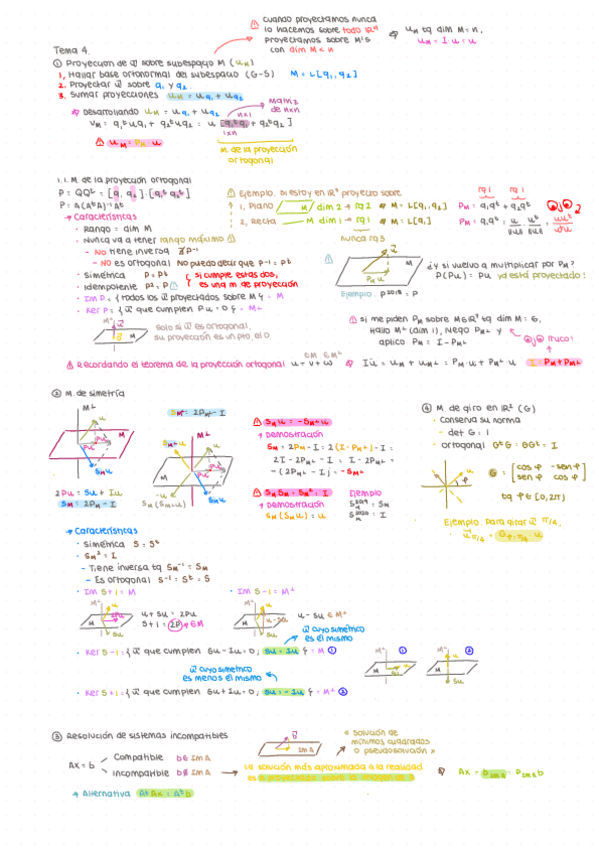 cuando proyectamos nunca
lo hacemos sobre todo
proyectamos sobre M's
con dim M < n
uM tq dim M = n,
uM = I u = u
Tema 4.
① Proyección de u sobre subespacio M (uM)
1. Hallar base ortonormal del subespacio (G-S) M = L[q1, q2]
2. Proyectar u sobre q1 y q2
3. Sumar proyecciones uM = uq1 + uq2
Desarrollando uM = uq1 + uq2
matriz
de n×n
M de la proyección
ortogonal
uM = PM u
1.1. M. de la proyección ortogonal
P = QQt = [q1 q2] · [q1t q2t]
P = A(AtA)-1At
→ Características
· Rango = dim M
· Nunca va a tener rango máximo
- No tiene inversa ∄P-1
- No es ortogonal No puedo decir que P-1 = Pt
· Simétrica P = Pt
· Idempotente P2 = P
si cumple estas dos,
es una m. de proyección
· Im P = {todos los u proyectados sobre M} = M
· Ker P = {u que cumplen Pu = 0} = M⊥
solo si u es ortogonal,
su proyección es un pto, el 0.
Ejemplo. Si estoy en R3 proyecto sobre
1. Plano M dim 2 → rg 2 M = L[q1, q2]
2. Recta M dim 1 → rg 1 M = L[q1]
nunca rg 3
rg 1 rg 1
PM = q1q1t + q2q2t
Ejemplo: P2018 = P
¿y si vuelvo a multiplicar por PM?
P(Pu) = Pu ya está proyectado!
hallo M⊥ (dim 1), luego PM⊥ y
aplico PM = I - PM⊥
truco!
Recordando el teorema de la proyección ortogonal u = v + w
Iu = uM + uM⊥ = PM·u + PM⊥·u
I = PM + PM⊥
② M. de simetría
2Pu = Su + Iu
SM = 2PM - I
SM⊥ = 2PM⊥ - I
SM⊥u = -SMu
↑ Demostración
SM = 2PM - I = 2(I - PM⊥) - I =
2I - 2PM⊥ - I = I - 2PM⊥ =
-(2PM⊥ - I) = -SM⊥
SM SM = SM2 = I
↑ Demostración
SM (SMu) = u
Ejemplo
④ M. de giro en R2 (G)
· Conserva su norma
- det G = 1
· Ortogonal GtG = GGt = I
G = [cos φ -sen φ
sen φ cos φ]
tq φ ∈ [0,2π)
Ejemplo. Para girar u π/4,
→ Características
· Simétrica S = St
· SM2 = I
- Tiene inversa tq SM-1 = SM
- Es ortogonal S-1 = St = S
· Im S+I = M
· Im S-I = M⊥
u + Su = 2Pu
S+I = 2P ∈ M
u - Su ∈ M⊥
u cuyo simétrico
es el mismo
· Ker S-I = {u que cumplen Su - Iu = 0; Su = Iu} = M ①
u cuyo simétrico
es menos el mismo
· Ker S+I = {u que cumplen Su + Iu = 0; Su = -Iu} = M⊥ ②
③ Resolución de sistemas incompatibles
Ax = b
Compatible b ∈ Im A
Incompatible b ∉ Im A
« Solución de
mínimos cuadrados
o pseudosolución »
La solución más aproximada a la realidad
es b proyectada sobre la imagen de A
Ax = bImA = PImA b
→ Alternativa AtAx = Atb